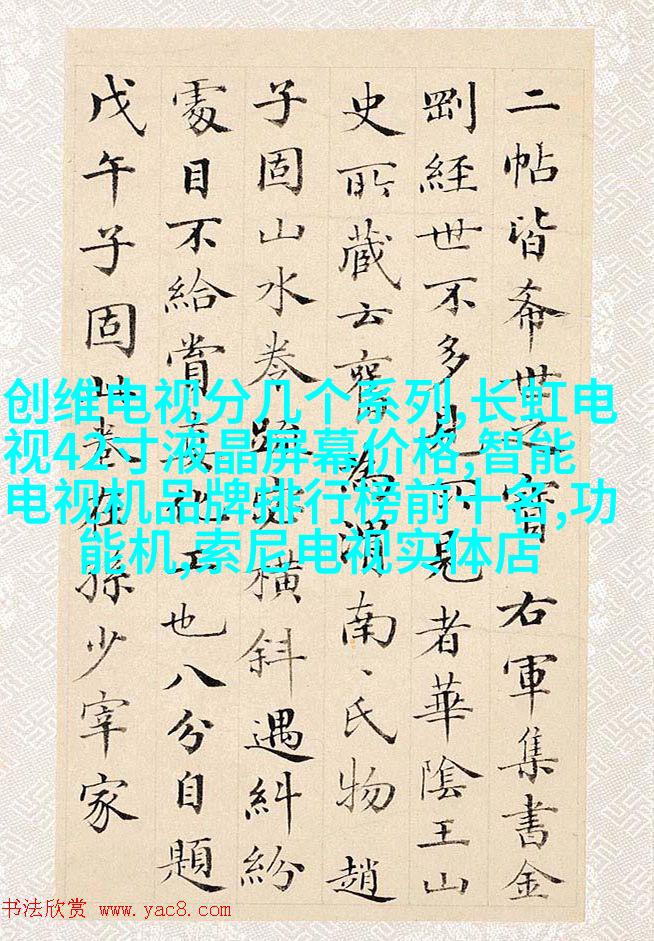 二帖皆希世之寶右軍集書金
剛經世不多見所見者華陰王山
史所藏云舊為渭南、氏物趙
子固山水卷疏密橫斜遇糾紛
處目不給賞真化工也八分自題
戊午子固此卷在孫少宰家
创维电视分几个系列,长虹电
视42寸液晶屏幕价格,智能
电视机品牌排行榜前十名,功
能机,索尼电视实体店
书法欣赏 www.yac8.com